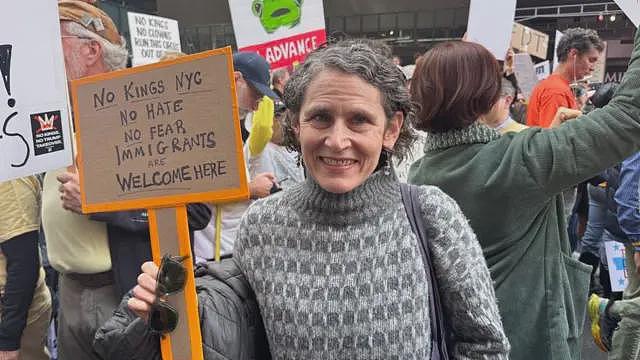 NO KINGS
NO CLOWNS
RUN THIS CIRCUS
ADVANCE
NO KINGS NYC
NO HATE
NO FEAR
IMMIGRANTS
ARE
WELCOME HERE
!
S
NO KINGS.
NO TRUMP
TAKEOVER.